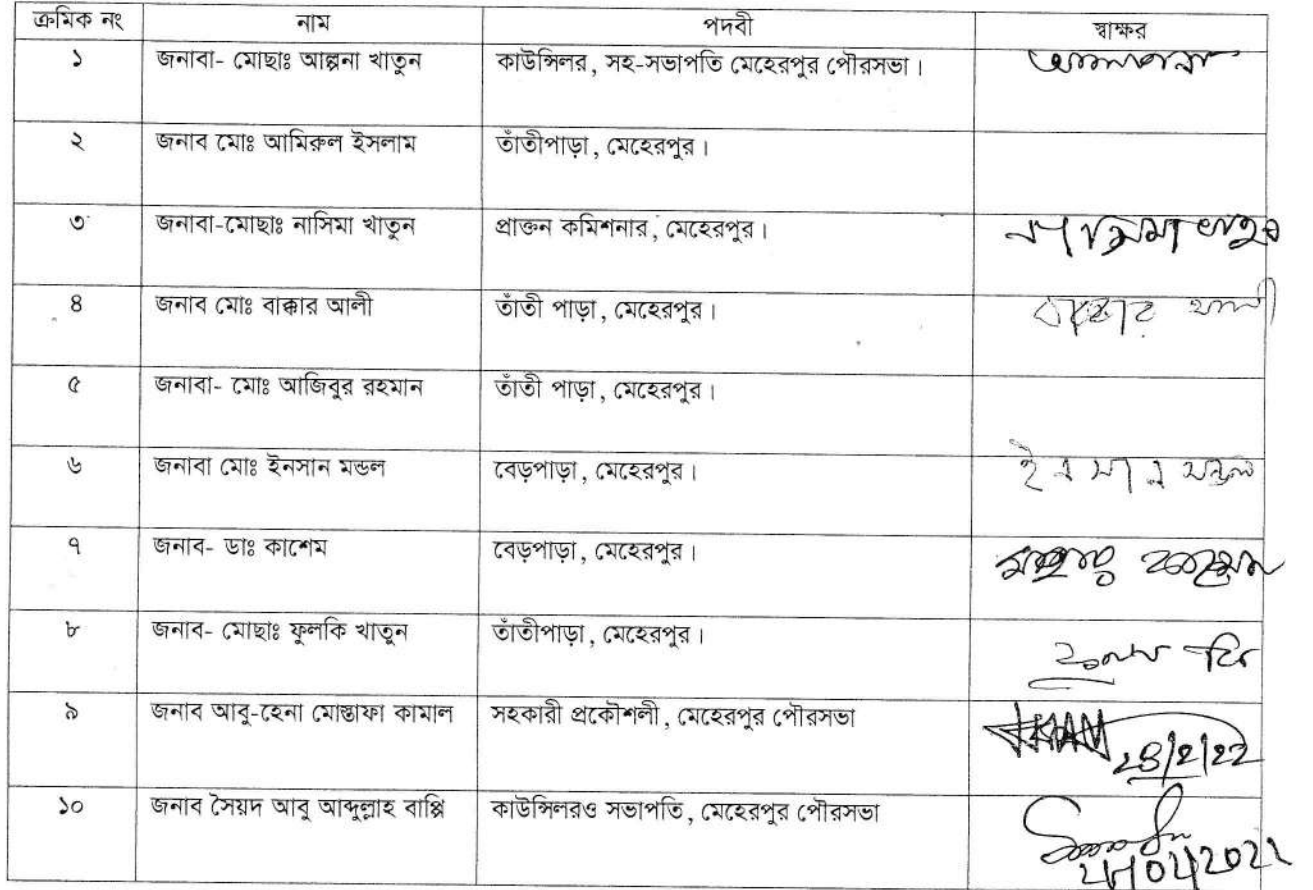 ক্রমিক নং নাম পদবী স্বাক্ষর
১ জনাবা- মোছাঃ আল্পনা খাতুন কাউন্সিলর, সহ-সভাপতি মেহেরপুর পৌরসভা।
২ জনাব মোঃ আমিরুল ইসলাম তাঁতীপাড়া, মেহেরপুর।
৩ জনাবা-মোছাঃ নাসিমা খাতুন প্রাক্তন কমিশনার, মেহেরপুর। নাসিমা খাতুন
৪ জনাব মোঃ বাক্কার আলী তাঁতী পাড়া, মেহেরপুর। বাক্কার আলী
৫ জনাবা- মোঃ আজিবুর রহমান তাঁতী পাড়া, মেহেরপুর।
৬ জনাবা মোঃ ইনসান মন্ডল বেড়পাড়া, মেহেরপুর। ইনসান মন্ডল
৭ জনাব- ডাঃ কাশেম বেড়পাড়া, মেহেরপুর।
৮ জনাব- মোছাঃ ফুলকি খাতুন তাঁতীপাড়া, মেহেরপুর।
৯ জনাব আবু-হেনা মোস্তাফা কামাল সহকারী প্রকৌশলী, মেহেরপুর পৌরসভা
১০ জনাব সৈয়দ আবু আব্দুল্লাহ বাপ্পি কাউন্সিলরও সভাপতি, মেহেরপুর পৌরসভা